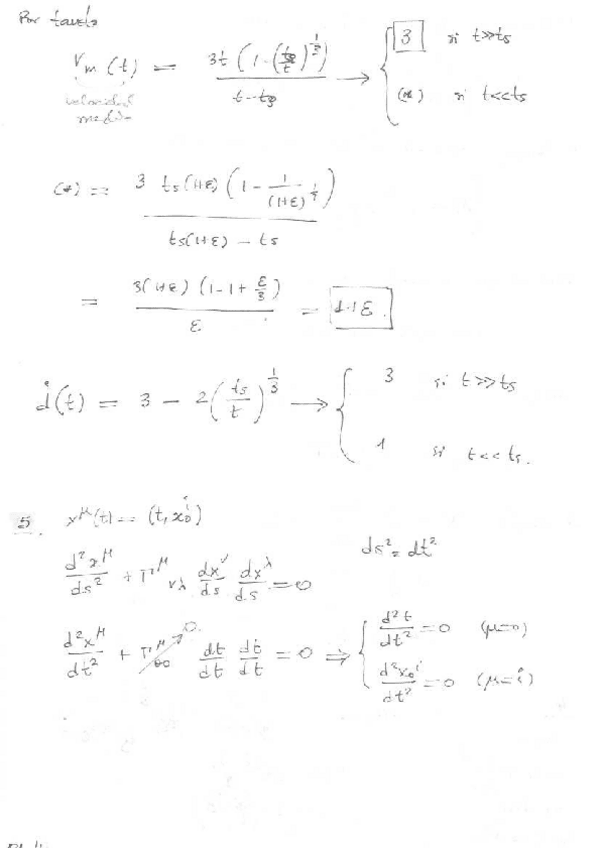 Por tanto
V_m(t) = 3t (1 - (ts/t)^{1/3}) / (t - ts) → { 3 si t>>ts
velocidad (*) si t<<ts
media
(*) = 3 ts(1+ε) (1 - 1/(1+ε)^{1/3}) / (ts(1+ε) - ts)
= 3(1+ε) (1-1+ε/3) / ε = 1+ε.
ḋ(t) = 3 - 2(ts/t)^{1/3} → { 3 si t>>ts
1 si t<<ts.
5. x^μ(t) = (t, x_0^i)
ds² = dt²
d²x^μ/ds² + Γ^μ_{νλ} dx^ν/ds dx^λ/ds = 0
d²x^μ/dt² + Γ^μ_{00} → 0 dt/dt dt/dt = 0 ⇒ { d²t/dt² = 0 (μ=0)
d²x_0^i/dt² = 0 (μ=i)